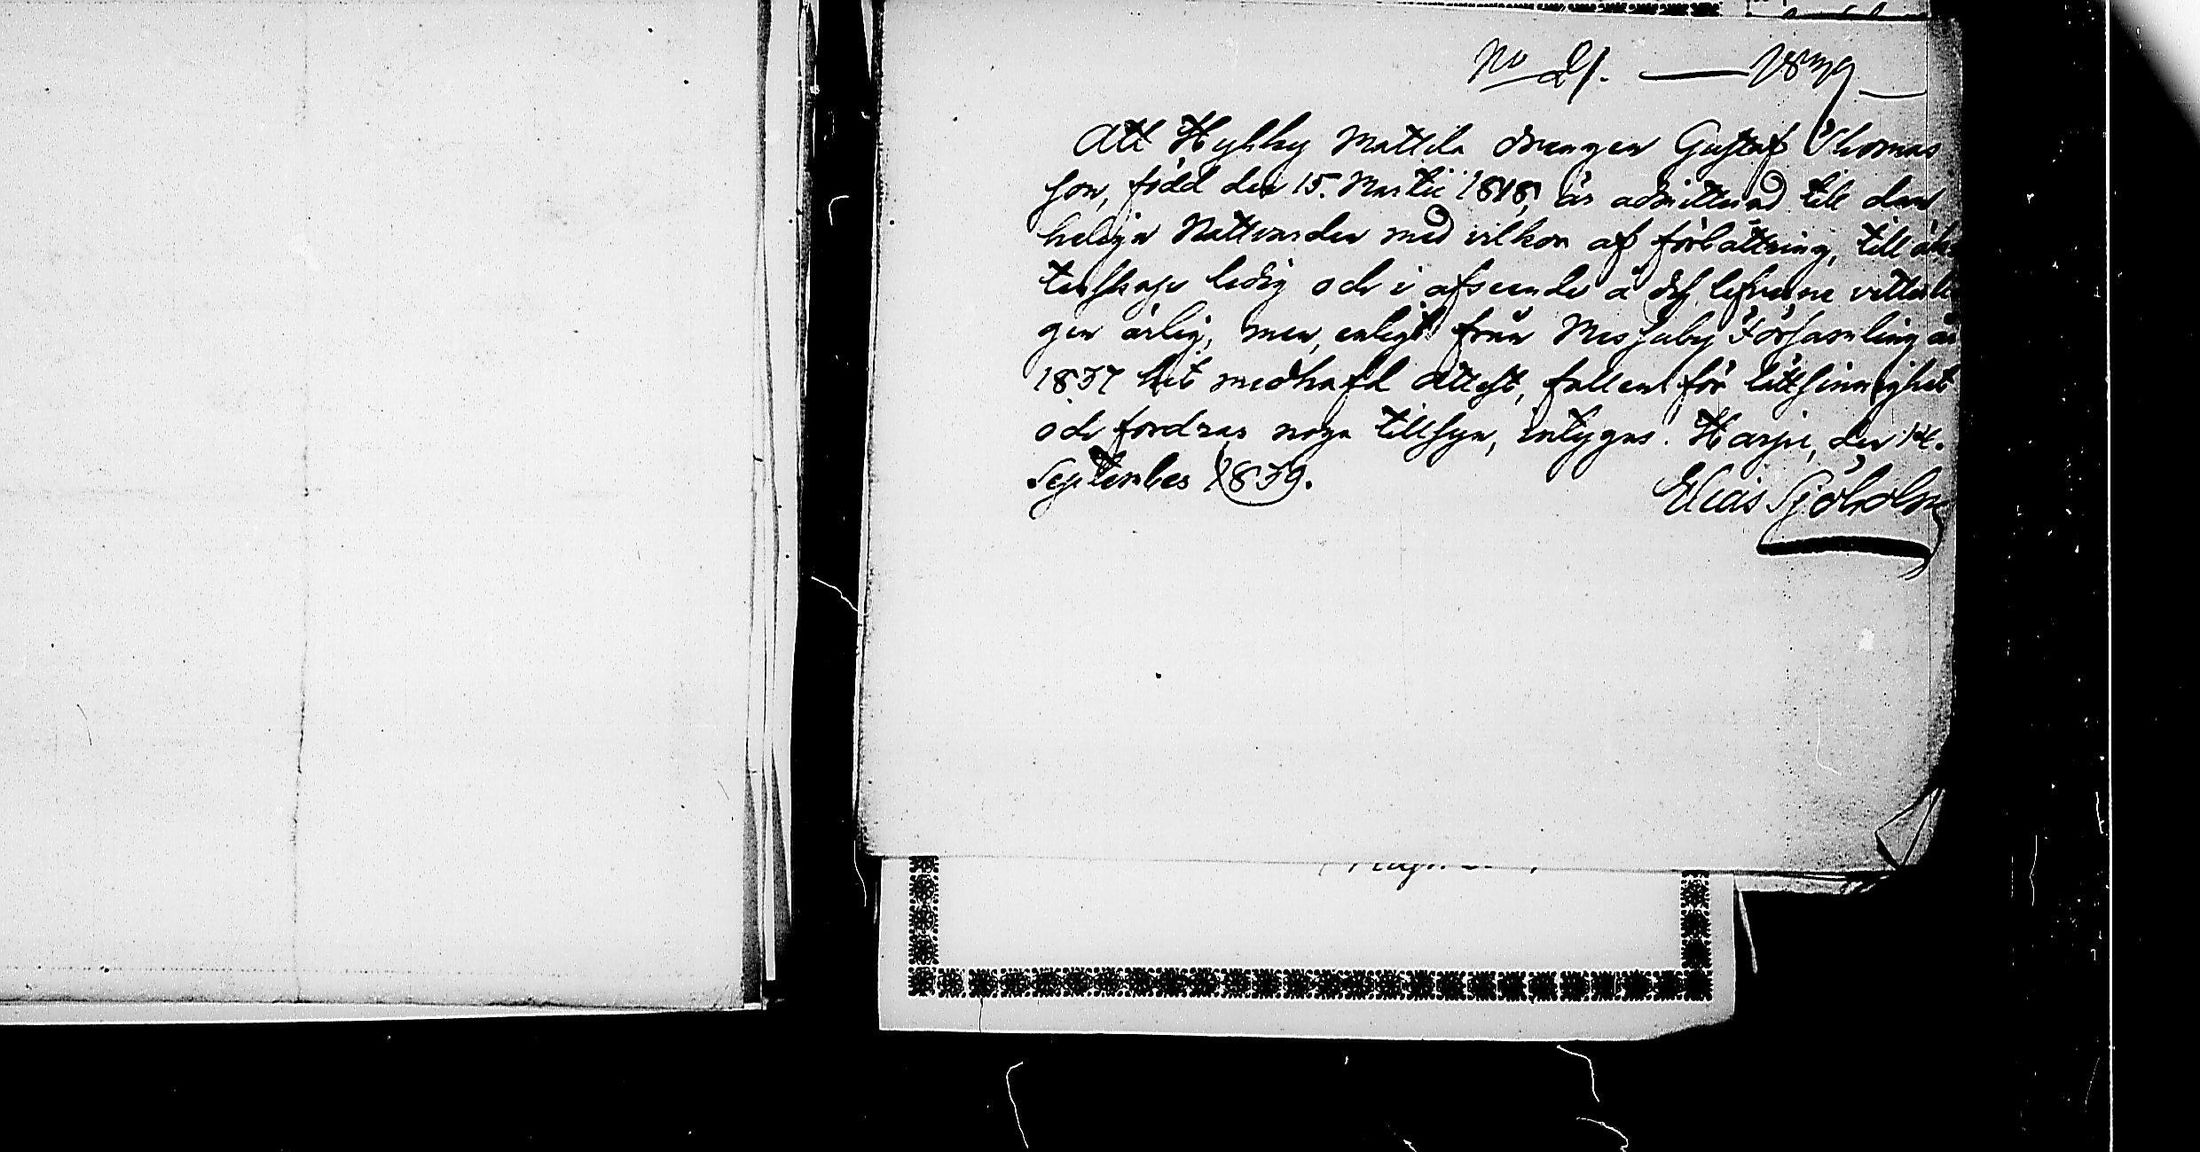 No 21. — 1839 —
Att Hyhky Mattila drängen Gustaf Thomas
son, född den 15. Martii 1818, är admitterad till den
heliga Nattvarden med vilkor af förbättring, till äk-
tenskap ledig och i afseende å dess lefverne vitterli
gen ärlig, men, enligt från Messuby Församling år
1837 hit medhafd attest, fallen för lättsinnighet
och fordrar noga tillsyn, intygas. Harju, den 14.
September 1839.
Elias Sjöholm